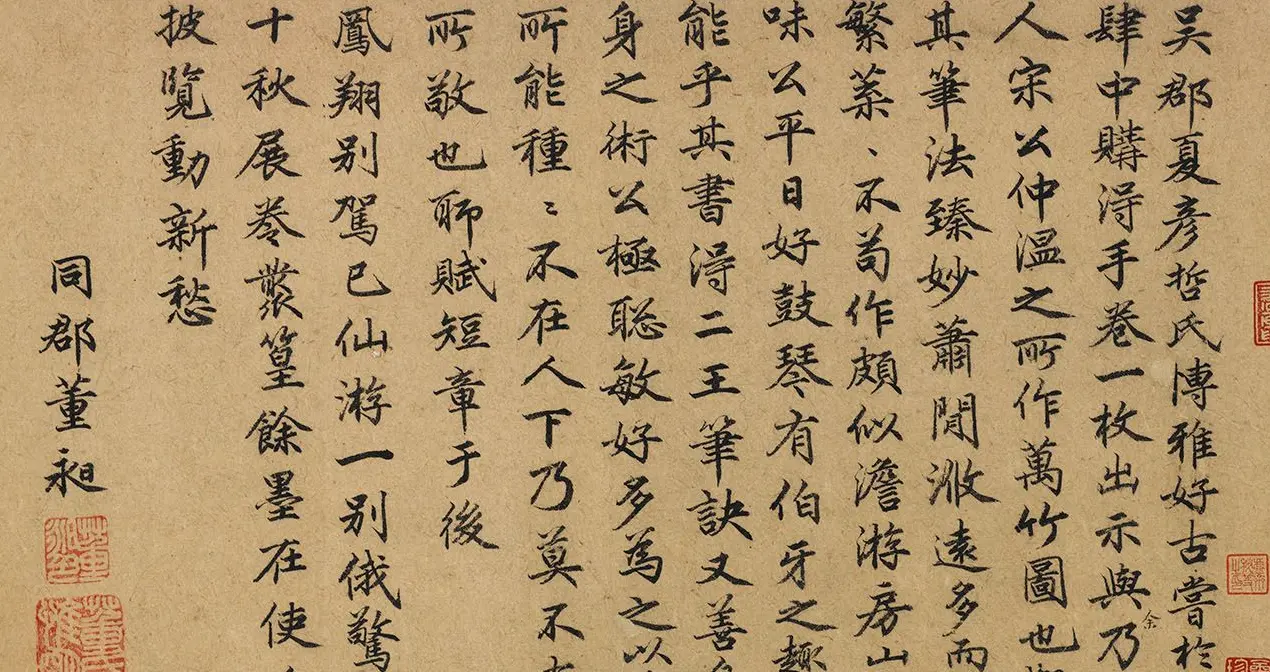 吴郡夏彦哲氏博雅好古嘗於
肆中購得手卷一枚出示與余乃
人宋公仲温之所作萬竹圖也
其筆法臻妙蕭閒淵遠多而
繁葉、不苟作頗似澹游房山
味公平日好鼓琴有伯牙之趣
能乎其書得二王筆訣又善
身之術公極聡敏好多為之以
所能種〻不在人下乃莫不
所敬也聊賦短章于後
鳳翔别駕已仙游一别俄驚
十秋展卷叢篁餘墨在使
披覽動新愁
同郡董昶